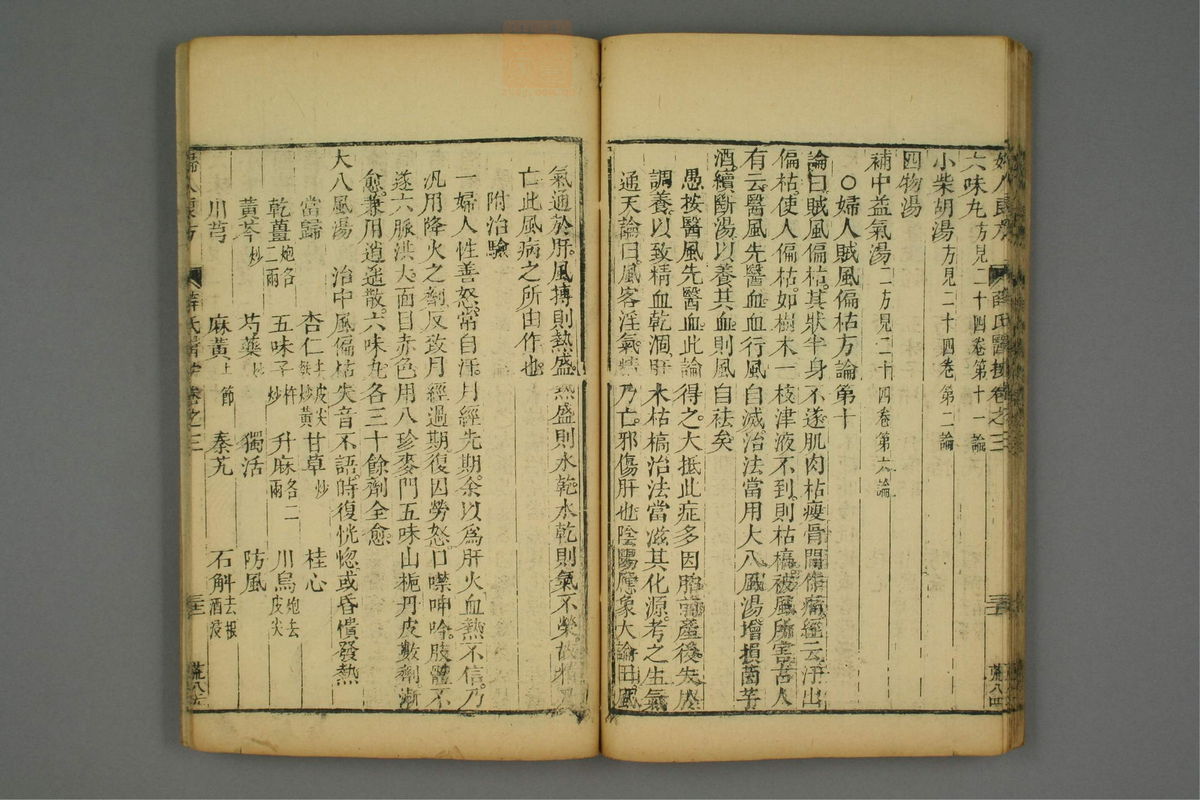 六味丸方見二十四卷第十一論
小柴胡湯方見二十四卷第二論
四物湯
補中益氣湯二方見二十四卷第六論
○婦人賊風偏枯方論第十
論曰賊風偏枯其狀半身不遂肌肉枯瘦骨間疼痛經云汗出
偏枯使人偏枯如樹木一枝津液不到則枯槁被風所害昔人
有云醫風先醫血血行風自滅治法當用大八風湯增損茵芋
酒續斷湯以養其血則風自袪矣
愚按醫風先醫血此論得之大抵此症多因胎前產後失於
調養以致精血乾涸肝木枯槁治法當滋其化源考之生氣
通天論曰風客淫氣精乃亡邪傷肝也陰陽應象大論曰風
氣通於肝風搏則熱盛熱盛則水乾水乾則氣不榮故精乃
亡此風病之所由作也
附治驗
一婦人性善怒常自汗月經先期余以為肝火血熱不信乃
汎用降火之劑反致月經過期復因勞怒口噤呻吟肢體不
遂六脈洪大面目赤色用八珍麥門五味山梔丹皮數劑漸
愈兼用逍遙散六味丸各三十餘劑全愈
大八風湯 治中風偏枯失音不語時復恍惚或昏憒發熱
當歸 杏仁去皮尖麩炒黃 甘草炒 桂心
乾薑炮各二兩 五味子杵炒 升麻各二兩 川烏炮去皮尖
黃芩炒 芍藥 獨活 防風
川芎 麻黃去節 秦艽 石斛去根酒浸
婦人良方 薛氏醫按卷之三